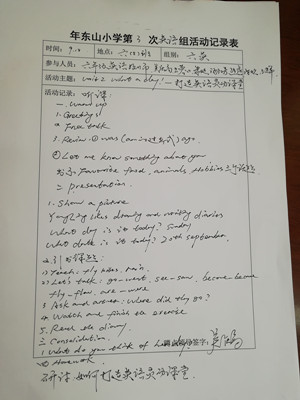 年东山小学第3次英语组活动记录表
时间: 9.20 地点: 六(2)班 组别: 六英
参与人员: 六年级英语教师
活动主题: unit 2 What a day! — 打造英语灵动课堂
活动记录: 听课
一. Warm up
1. Greetings
2. Free talk
3. Review ① was (am/is过去式) ago.
② Let me know something about you
Favourite food, animals, hobbies
二 presentation.
1. Show a picture
YangLing likes drawing and writing diaries
What day is it today? Sunday
What date is it today? 20th september.
2.
1) Teach: fly kites, rain.
2) Let's talk: go-went, see-saw, become-became
fly-flew, are-were
3 Ask and answer: Where did they go?
4. Watch and finish the exercise
5. Read the diary.
三 Consolidation.
1. What do you think of
四 Homework.
签字:
研讨: 如何打造英语灵动课堂.